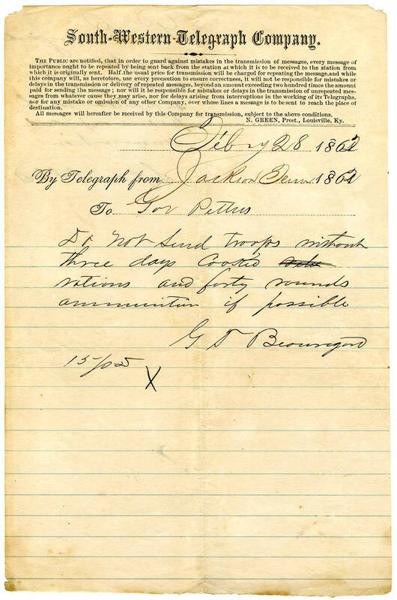 South-Western Telegraph Company.
THE PUBLIC are notified, that in order to guard against mistakes in the transmission of messages, every message of
importance ought to be repeated by being sent back from the station at which it is to be received to the station from
which it is originally sent. Half the usual price for transmission will be charged for repeating the message, and while
this company will, as heretofore, use every precaution to ensure correctness, it will not be responsible for mistakes or
delays in the transmission or delivery of repeated messages, beyond an amount exceeding two hundred times the amount
paid for sending the message; nor will it be responsible for mistakes or delays in the transmission of unrepeated mes-
sages from whatever cause they may arise, nor for delays arising from interruptions in the working of its Telegraphs,
nor for any mistake or omission of any other Company, over whose lines a message is to be sent to reach the place of
destination.
All messages will hereafter be received by this Company for transmission, subject to the above conditions.
N. GREEN, Prest., Louisville, Ky.
Feby 28 1862
By Telegraph from Jackson Tenn 1862
To Gov Pettus
Do Not Send troops without
three days Cooked
rations and forty rounds
ammunition if possible
G T Beauregard
15/pd
X